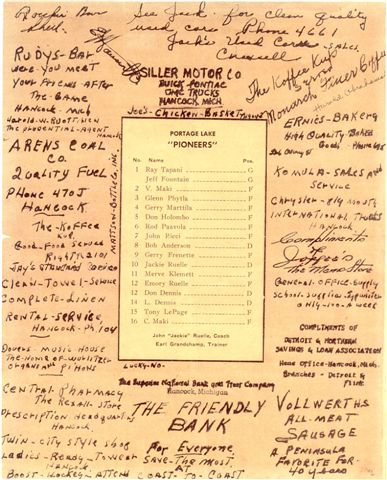 See Jack for clean quality
used cars Phone 4661
Jack's Used Cars
SALES.
RUDYS-BAR
WERE YOU MEET
YOUR FRIENDS AFTER
THE-GAME
HANCOCK-MICH
THE PRUDENTIAL-AGENT
ARENS COAL
CO.
QUALITY FUEL
PHONE 470J
HANCOCK
THE-KOFFEE
KUP
GOOD-FOOD SERVICE
CLEAN-TOWEL-SERVICE
COMPLETE-LINEN
RENTAL-SERVICE,
HANCOCK-PH 104
MUSIC HOUSE
THE-HOME-OF-WURLITZER
ORGANS AND PIANOS
CENTRAL PHARMACY
THE REXALL STORE
PRESCRIPTION HEADQUARTERS
HANCOCK.
TWIN-CITY STYLE SHOP
LADIES-READY-TO-WEAR
HANCOCK
BOOST-HOCKEY-ATTEND
MATTSON-BOTTLE INC.
SILLER MOTOR CO
BUICK-PONTIAC
GMC TRUCKS
HANCOCK, MICH
JOE'S-CHICKEN-BASKET
PORTAGE LAKE
"PIONEERS"
No. Name Pos.
1 Ray Tapani G
Jeff Fountain G
2 V. Maki F
3 Glenn Phytla F
4 Gerry Marttila F
5 Don Holombo F
6 Rod Paavola F
7 John Ricci F
8 Bob Anderson D
9 Gerry Frenette D
10 Jackie Ruelle D
11 Merve Klemett F
12 Emory Ruelle F
13 Don Dennis D
14 L. Dennis D
15 Tony LePage F
16 C. Maki F
John "Jackie" Ruelle, Coach
Earl Grandchamp, Trainer
LUCKY-NO.
The Superior National Bank and Trust Company
Hancock, Michigan
THE FRIENDLY
BANK
For Everyone
SAVE-THE MOST
AT
COAST-TO-COAST
The Koffee Kup
serves
Monarch Finer Coffee
ERNIES-BAKERY
HIGH QUALITY BAKED
Goods
KOMULA-SALES AND
SERVICE
CHRYSLER-PLYMOUTH
INTERNATIONAL TRUCKS
HANCOCK
Compliments
of
Men's Store
GENERAL-OFFICE-SUPPLY
COMPLIMENTS OF
DETROIT & NORTHERN
SAVINGS & LOAN ASSOCIATION
HEAD OFFICE-HANCOCK, MICH.
BRANCHES-DETROIT &
FLINT
VOLLWERTHS
ALL-MEAT
SAUSAGE
A PENINSULA
FAVORITE FOR
40 YEARS